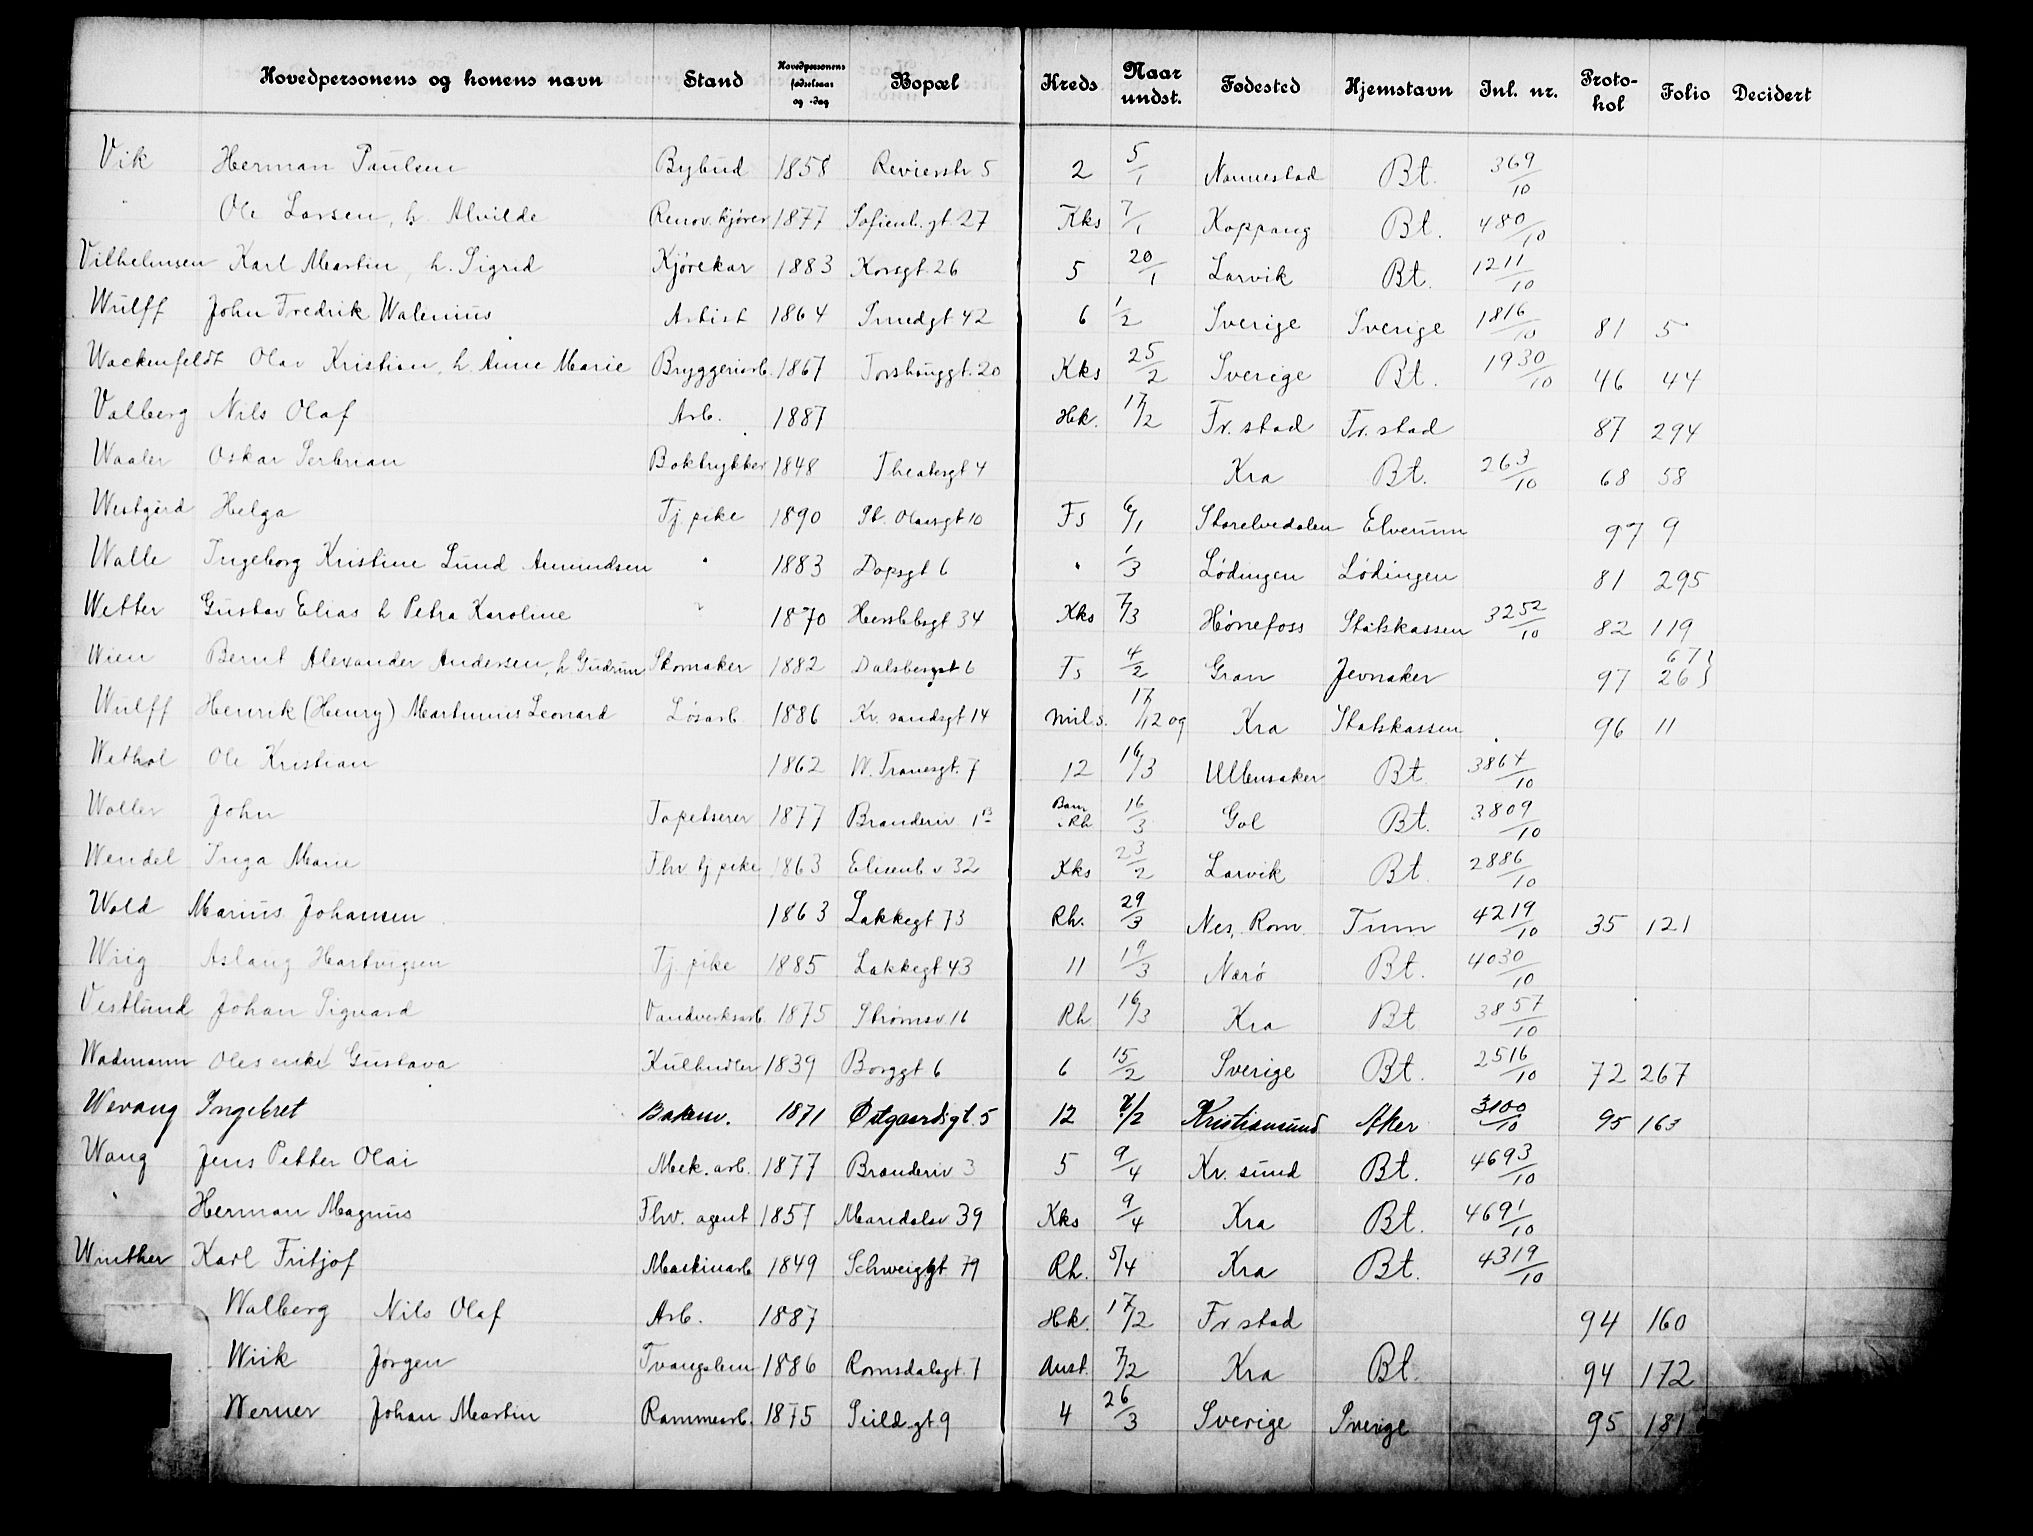 Hovedpersonens og konens navn Stand Hovedpersonens fødselsaar og -dag Bopæl Kreds Naar undst. Fødested Hjemstavn Inl. nr. Proto-kol Folio Decidert
Vik Herman Paulsen Bybud 1858 Revierstr 5 2 5/1 Nannestad Bt. 369/10
" Ole Larsen, h. Alvilde Renov. kjører 1877 Sofienb.gt. 27 Kks 7/1 Koppang Bt. 480/10
Vilhelmsen Karl Martin, h. Sigrid Kjørekar 1883 Korsgt. 26 5 20/1 Larvik Bt. 1211/10
Wulff John Fredrik Walenius Artist 1864 Smedgt 42 6 1/2 Sverige Sverige 1816/10 81 5
Wackenfeldt Olav Kristian, h. Anne Marie Bryggeriarb. 1867 Torshauggt. 20 Kks 25/2 Sverige Bt. 1930/10 46 44
Valberg Nils Olaf Arb. 1887 Hk. 17/2 Fr. stad Fr. stad 87 294
Waaler Oskar Boktrykker 1848 Theatergt 4 Kra Bt. 263/10 68 58
Westgård Helga Tj. pike 1890 St. Olavsgt 10 Fs 6/1 Storelvedalen Elverum 97 9
Walle Ingeborg Kristine Lund Amundsen " 1883 Dopsgt 6 " 1/3 Lødingen Lødingen 81 295
Wetter Gustav Elias h Petra Karoline " 1870 Herslebsgt 34 Kks 7/3 Hønefoss Statskassen 3252/10 82 119
Wien Bernt Alexander Andersen, h Gudrun Skomaker 1882 Dalsbergst 6 Fs 4/2 Gran Jevnaker 97 67 26 }
Wulff Henrik (Henry) Martinius Leonard Løsarb. 1886 Kr. sandsgt 14 Mil.s. 17/12 09 Kra Statskassen 96 11
Wethal Ole Kristian 1862 W. Tranesgt. 7 12 16/3 Ullensaker Bt. 3864/10
Waller John Tapetserer 1877 Branderiv 1 B Barn Rh 16/3 Gol Bt. 3809/10
Wendel Inga Marie Fhv tj pike 1863 Elisenb v 32 Kks 23/2 Larvik Bt. 2886/10
Wold Marius Johansen 1863 Lakkegt 73 Rh. 29/3 Nes, Rom. Trim 4219/10 35 121
Wiig Aslaug Hartvigsen Tj. pike 1885 Lakkegt 43 11 19/3 Nærø Bt. 4030/10
Vestlund Johan Sigvard Vandverksarb 1875 Strømsv 16 Rh 16/3 Kra Bt 3857/10
Wadmann Oles enke Gustava Kulhndler 1839 Borggt 6 6 15/2 Sverige Bt. 2516/10 72 267
Wevang Ingebret Bakerw. 1871 Østgaardsgt. 5 12 /2 Kristiansund Aker 3100/10 95 163
Wang Jens Petter Olai Mek. arb. 1877 Branderiv 3 5 9/4 Kr. sund Bt. 4693/10
" Herman Magnus Fhv. agent 1857 Maridalsv 39 Kks 9/4 Kra Bt. 4691/10
Winther Karl Fritjof Maskinarb 1849 Schweiggt 79 Rh. 5/4 Kra Bt. 4319/10
Walberg Nils Olaf Arb. 1887 Hk. 17/2 Fr stad 94 160
Wiik Jørgen Tvangslem 1886 Romsdalsgt. 7 Anst. 7/2 Kra Bt. 94 172
Werner Johan Martin Rammearb. 1875 Siild.gt 9 4 26/3 Sverige Sverige 95 181